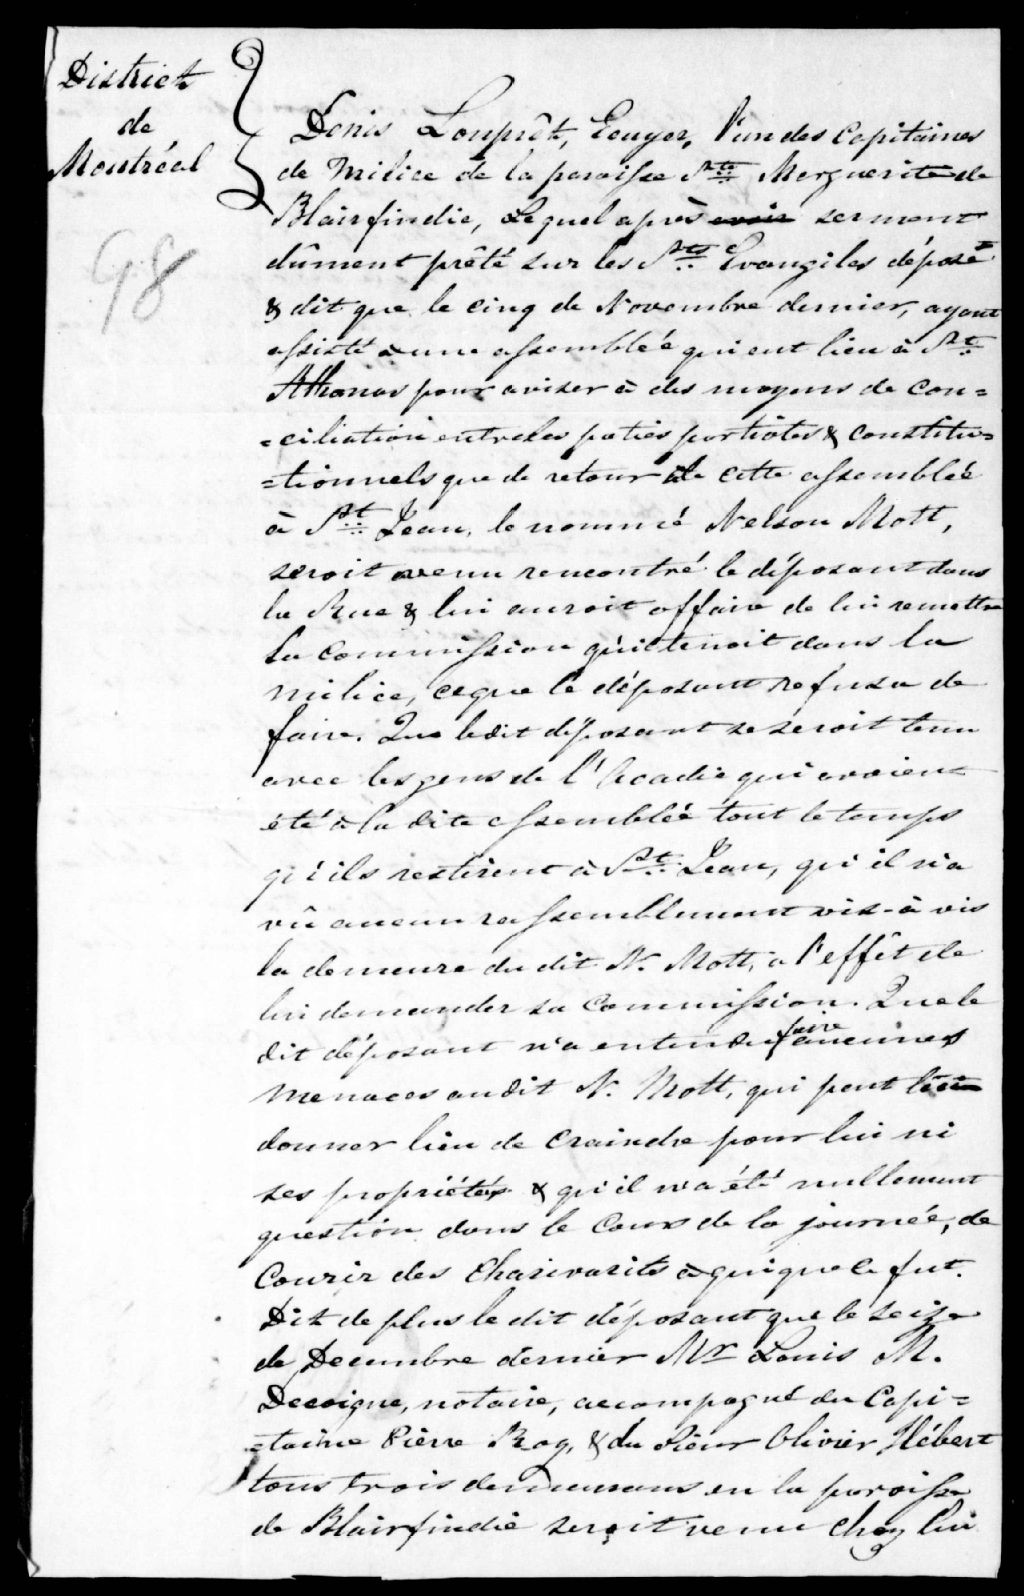 District
de
Montréal
98
Denis Louprêt, Ecuyer, l'un des Capitaines
de Milice de la paroisse Ste Marguerite de
Blairfindie, Lequel après avoir serment
dûment prêté sur les Sts Evangiles dépose
& dit que le cinq de Novembre dernier, ayant
assisté à une assemblée qui eut lieu à St
Athanas pour aviser à des moyens de con=
=ciliation entre les paties partiotes & constitu=
=tionnels que de retour de cette assemblée
à St Jean, le nommé Nelson Mott,
seroit venu rencontré le déposant dans
la Rue & lui auroit offaire de lui remettre
la Commission qu'il tenoit dans la
milice, ce que le déposant refusa de
faire. Que ledit déposant se seroit tenu
avec les gens de l'Acadie qui avoient
été à la dite assemblée tout le temps
qu'ils restirent à St Jean, qu'il n'a
vû aucun rassemblement vis-à vis
la demeure du dit N. Mott, a l'effêt de
lui demander sa Commission. Que le
dit déposant n'a entendu faire aucunes
menaces au dit N. Mott, qui peut
donner lieu de craindre pour lui ni
ses propriétés & qu'il n'a été nullement
question dans le cours de la journée, de
Courir des Charivarits à qui que ce fut.
Dit de plus le dit déposant que le seize
de Decembre dernier Mr Louis M.
Decoigne, notaire, accompagné du Capi=
=taine Pièrre Roy, & du Sieur Olivier Hébert
tous trois demeurans en la paroisse
de Blairfindie seroit venu chez lui